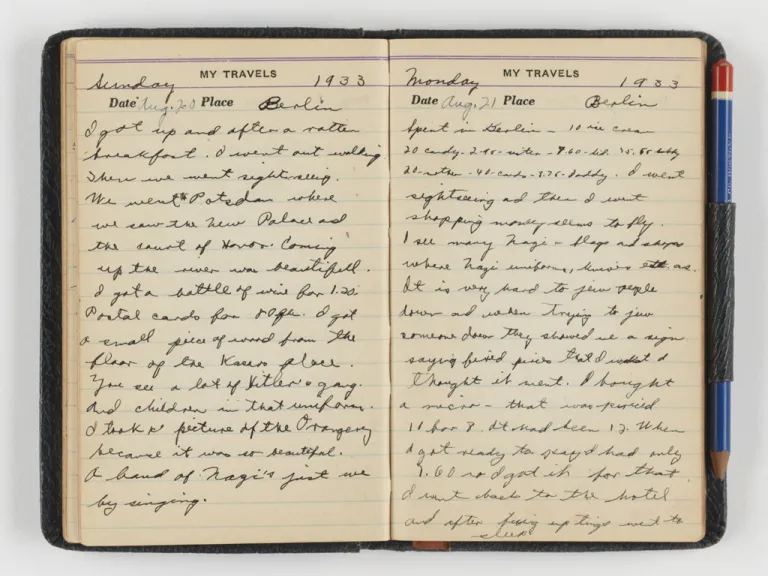 MY TRAVELS
Sunday 1933
Date Aug. 20 Place Berlin
I got up and after a rotten
breakfast. I went out walking
Then we went sightseeing.
We went to Potsdam where
we saw the New Palace ad
the court of Honor. Coming
up the river was beautifull.
I got a bottle of wine for 1.20.
Postal cards for I got
a small piece of wood from the
floor of the Kaisers place.
You see a lot of Hitler's gang.
And children in that uniform.
I took a picture of the Orangery
because it was so beautiful.
A band of Nazi's just we
by singing.
MY TRAVELS
Monday 1933
Date Aug. 21 Place Berlin
Spent in Berlin - 10 ice cream
20 candy - 2.95 - - 9.60 - -
20 - - 40 - cards - - daddy. I went
sightseeing ad then I went
shopping money seems to fly.
I see many Nazi - flags and
where Nazi uniforms, knives ett. as.
It is very hard to jew people
down ad when trying to jew
someone down they showed us a sign
saying fixed prices that's what I
thought it ment. I bought
a micro - that was priced
11 for 8. It had been 12. When
I got ready to pay I had only
7.60 so I got it for that
I went back to the hotel
and after fixing up tings went to
sleep